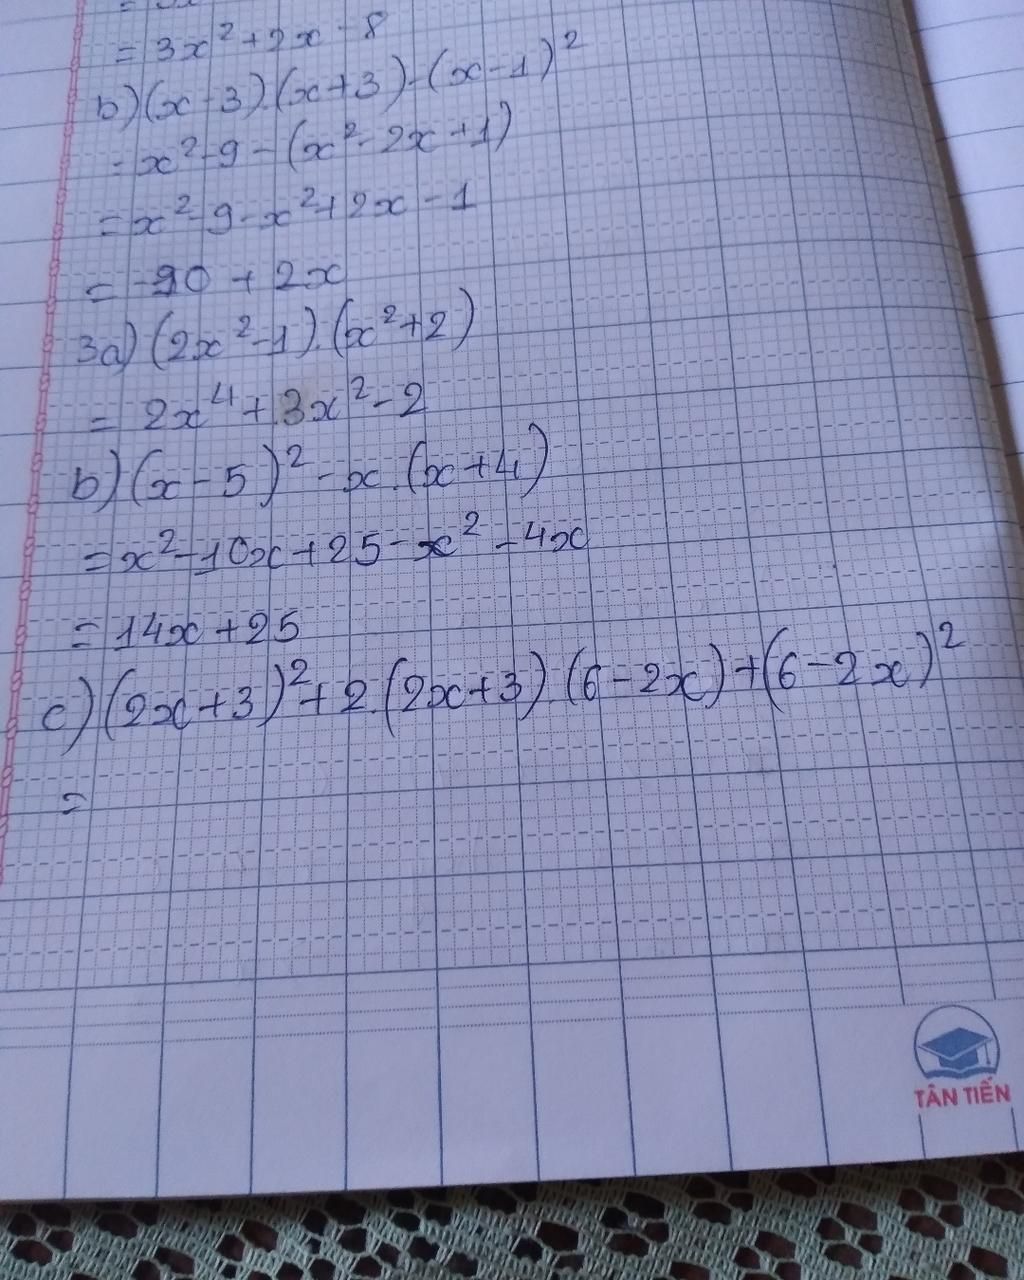 = 3x² + 2x - 8
b) (x - 3).(x + 3) - (x - 1)²
= x² - 9 - (x² - 2x + 1)
= x² - 9 - x² + 2x - 1
= -10 + 2x
3a) (2x² - 1).(x² + 2)
= 2x⁴ + 3x² - 2
b) (x - 5)² - x.(x + 4)
= x² - 10x + 25 - x² - 4x
= 14x + 25
c) (2x + 3)² + 2.(2x + 3).(6 - 2x) + (6 - 2x)²
=
TÂN TIẾN